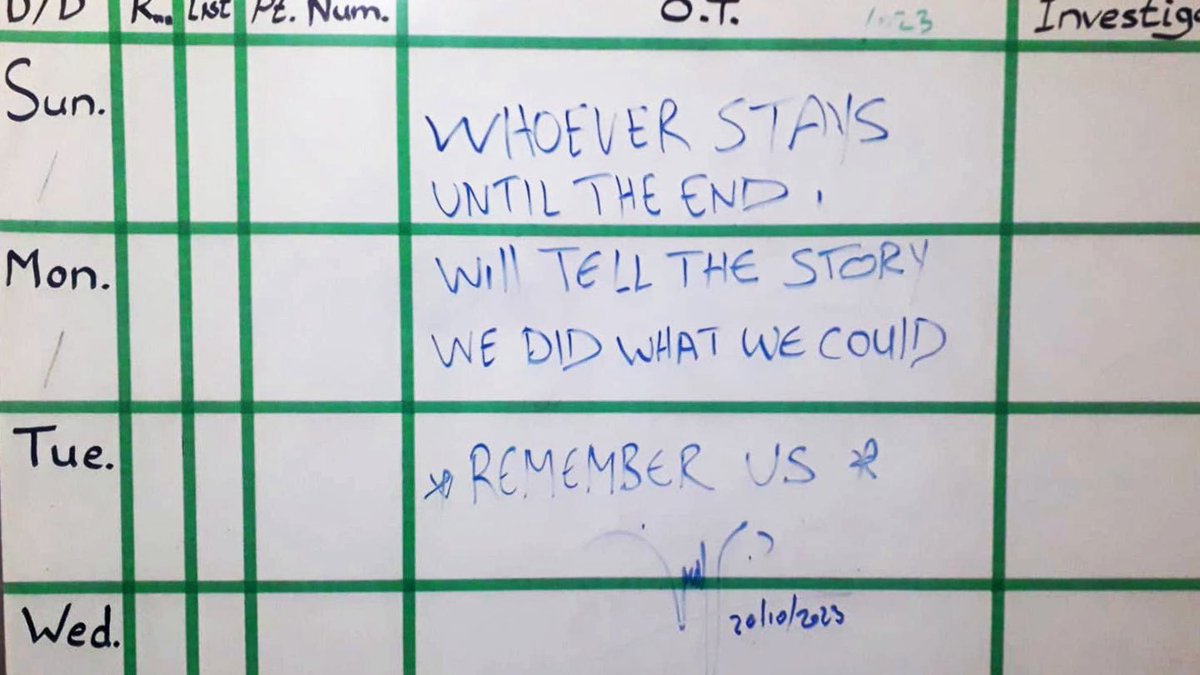 D/D List Pt. Num. O.T. Investig
Sun.
WHOEVER STAYS
UNTIL THE END.
Mon.
Will TELL THE STORY
WE DID WHAT WE COULD
Tue.
*REMEMBER US *
20/10/2023
Wed.